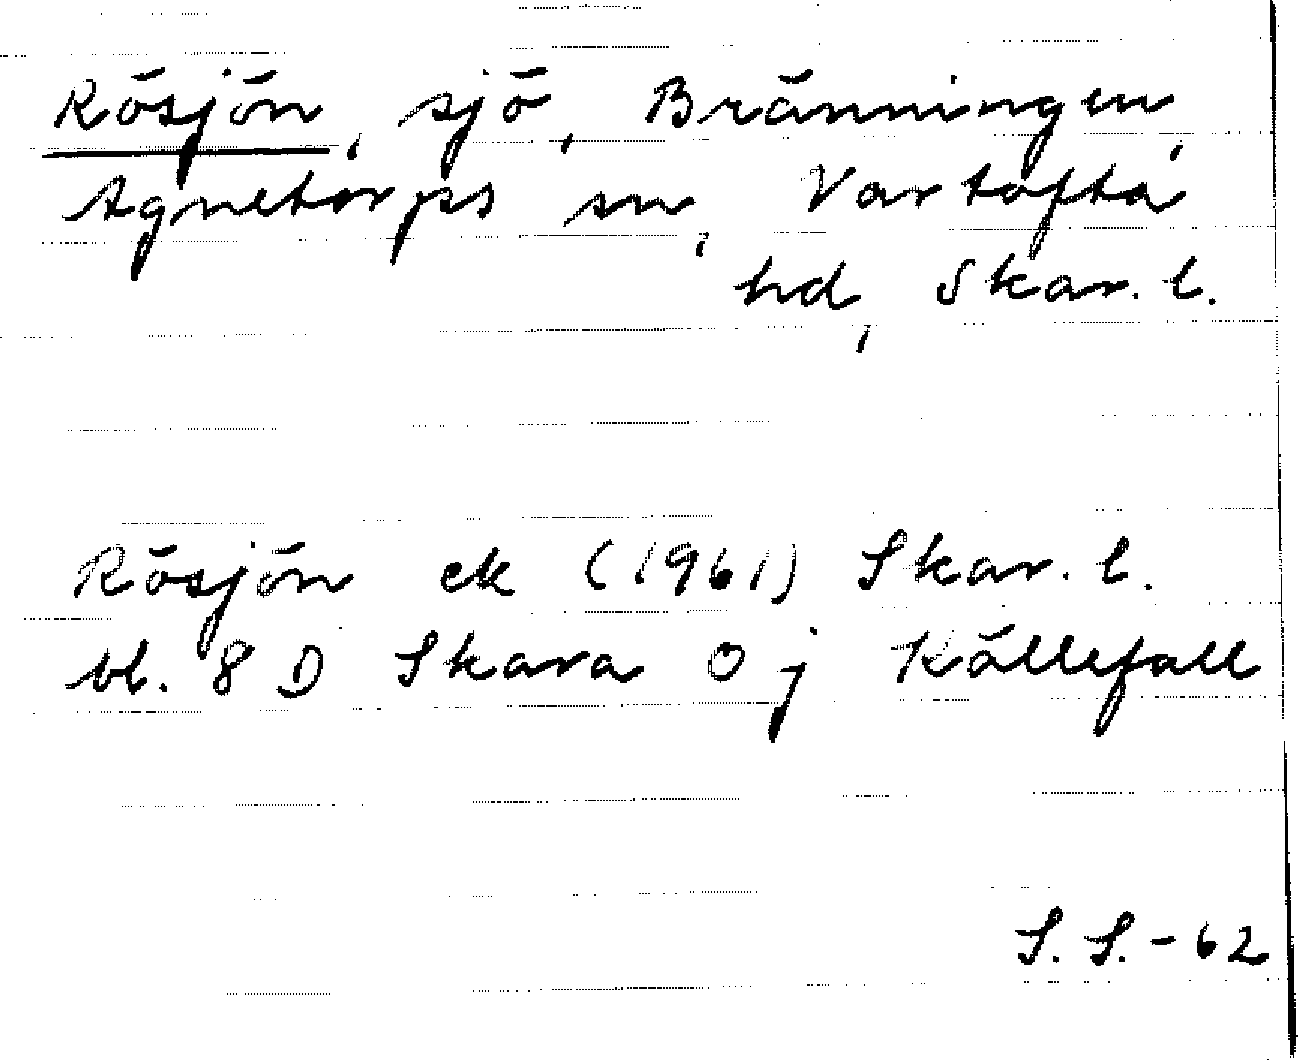 Rösjön, sjö, Bränningen,
Agnetorps sn, Vartofta
hd, Skar. l.
Rösjön ek (1961) Skar. l.
bl. 8 D Skara 0 j Källefall
S. S. - 62